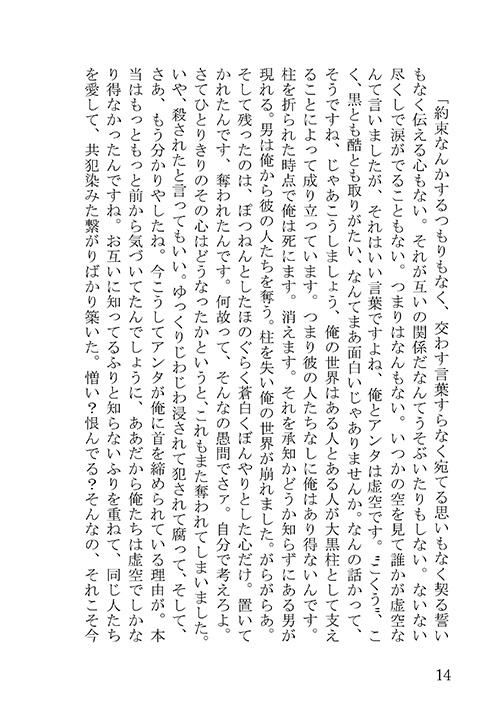 「約束なんかするつもりもなく、交わす言葉すらなく宛てる思いもなく契る誓い
もなく伝える心もない。それが互いの関係だなんてうそぶいたりもしない。ないない
尽くしで涙がでることもない。つまりはなんもない。いつかの空を見て誰かが虚空な
んて言いましたが、それはいい言葉ですよね、俺とアンタは虚空です。〝こくう〟、こ
く、黒とも酷とも取りがたい、なんてまあ面白いじゃありませんか。なんの話かって、
そうですね、じゃあこうしましょう、俺の世界はある人とある人が大黒柱として支え
ることによって成り立っています。つまり彼の人たちなしに俺はあり得ないんです。
柱を折られた時点で俺は死にます。消えます。それを承知かどうか知らずにある男が
現れる。男は俺から彼の人たちを奪う。柱を失い俺の世界が崩れました。がらがらあ。
そして残ったのは、ぽつねんとしたほのぐらく蒼白くぼんやりとした心だけ。置いて
かれたんです、奪われたんです。何故って、そんなの愚問でさァ。自分で考えろよ。
さてひとりきりのその心はどうなったかというと、これもまた奪われてしまいました。
いや、殺されたと言ってもいい。ゆっくりじわじわ浸されて犯されて腐って、そして、
さあ、もう分かりやしたね。今こうしてアンタが俺に首を締められている理由が。本
当はもっともっと前から気づいてたんでしょうに、ああだから俺たちは虚空でしかな
り得なかったんですね。お互いに知ってるふりと知らないふりを重ねて、同じ人たち
を愛して、共犯染みた繋がりばかり築いた。憎い？恨んでる？そんなの、それこそ今
14